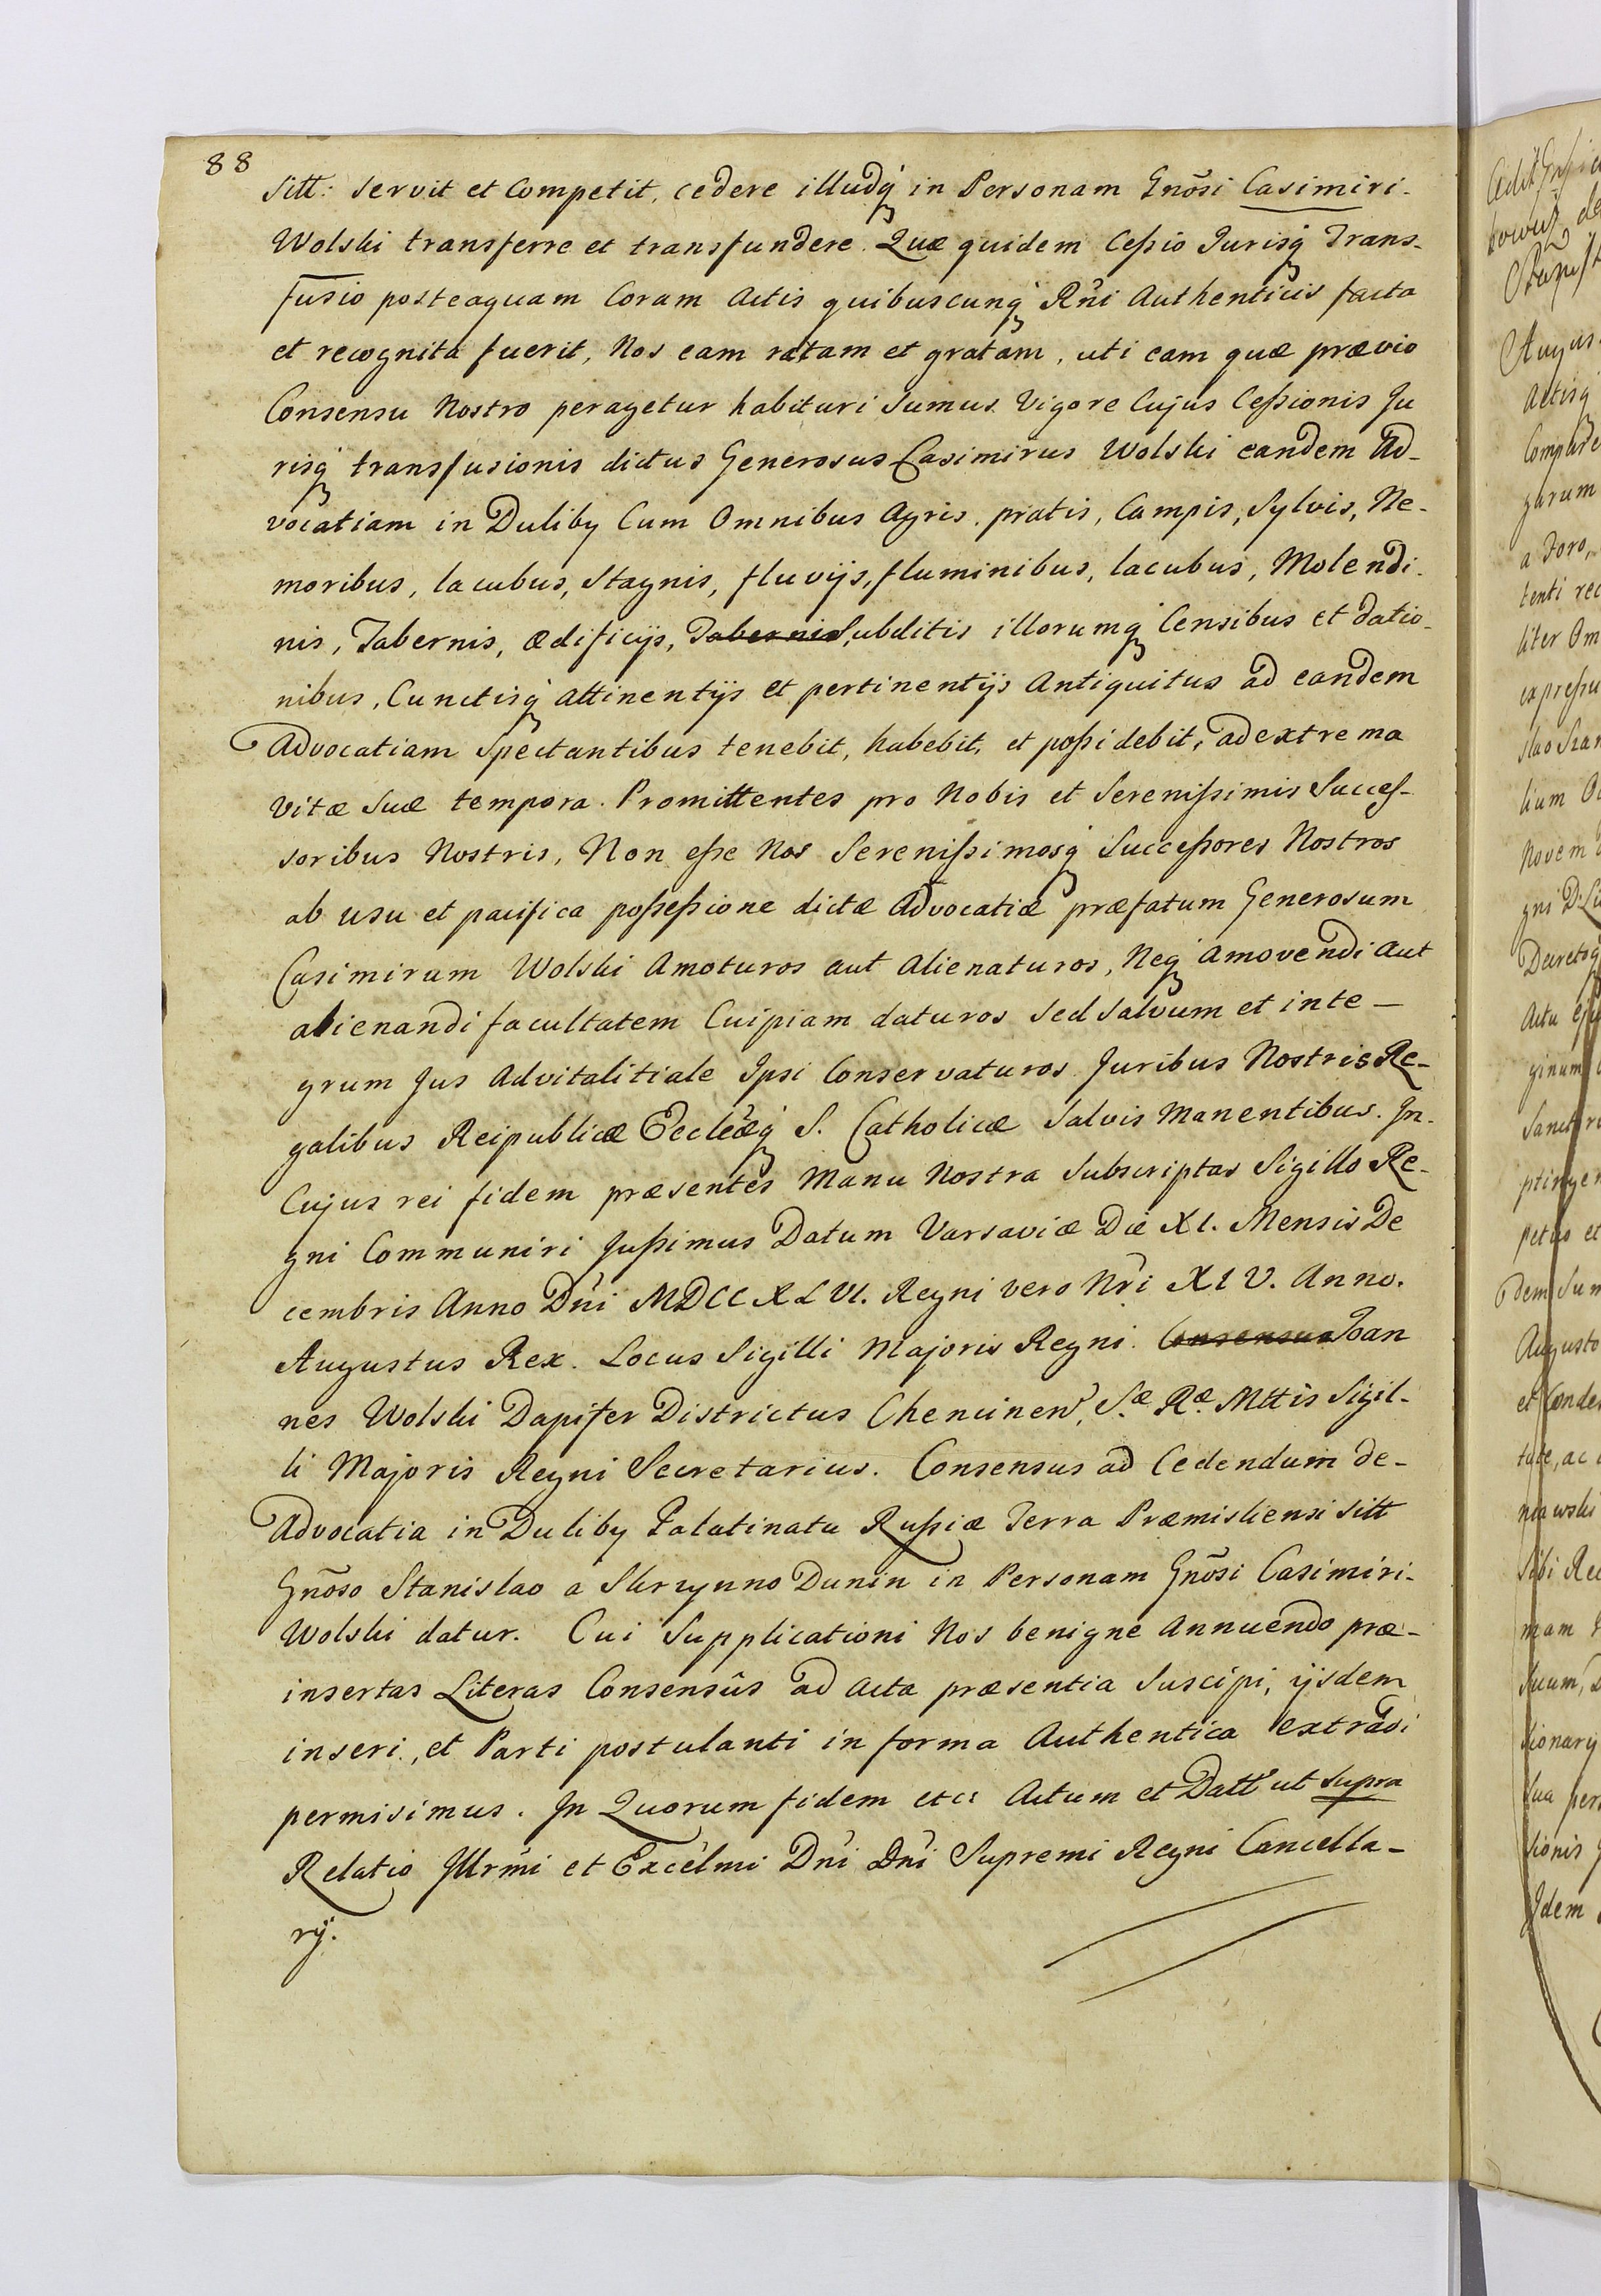 88
Sitt: servit et Competit, cedere illudq́ in Personam Gnõsi Casimiri-
Wolski transferre et transfundere. Quæ quidem Cessio Jurisq́ Trans-
fusio posteaquam Coram Actis quibuscunq́ Rńi Authenticis facta
et recognita fuerit, Nos eam ratam et gratam, uti eam quæ prævio
Consensu Nostro peragetur habituri Sumus. Vigore Cujus Cessionis Ju
risq́ transfusionis dictus Generosus Casimirus Wolski eandem Ad-
vocatiam in Duliby Cum Omnibus Agris, pratis, Campis, Sylvis, Ne-
moribus, lacubus, Stagnis, fluvijs, fluminibus, lacubus, Molendi-
nis, Tabernis, ædificijs, Tabernis Subditis illorumq́ Censibus et datio-
nibus, Cunctisq́ attinentijs et pertinentijs Antiquitus ad eandem
Advocatiam Spectantibus tenebit, habebit, et possidebit, ad extrema
Vitæ Suæ tempora. Promittentes pro Nobis et Serenissimis Succes-
soribus Nostris, Non esse Nos Serenissimosq́ Successores Nostros
ab usu et pacifica possessione dictæ Advocatiæ præfatum Generosum
Casimirum Wolski Amoturos aut Alienaturos, Neq́ amovendi aut
alienandi facultatem Cuipiam daturos sed Salvum et inte-
grum Jus Advitalitiale Ipsi Conservaturos. Juribus Nostris Re-
galibus Reipublicæ Eccleæq́ S. Catholicæ Salvis Manentibus. In-
Cujus rei fidem præsentes Manu Nostra Subscriptas Sigillo Re-
gni Communiri Jussimus Datum Varsaviæ Die XI. Mensis De
cembris Anno Dńi MDCCXLVI. Regni vero Nŕi XIV. Anno.
Augustus Rex. Locus Sigilli Majoris Regni. Consensus Joan
nes Wolski Dapifer Districtus Chencinen, S.æ R.æ Mttis Sigil-
li Majoris Regni Secretarius. Consensus ad Cedendum de-
Advocatia in Duliby Palatinatu Russiæ Terra Præmisliensi Sitt
Gnõso Stanislao a Skrzynno Dunin in Personam Gnõsi Casimiri-
Wolski datur. Cui Supplicationi Nos benigne Annuendo præ-
insertas Literas Consensûs ad Acta præsentia Suscipi, ijsdem
inseri, et Parti postulanti in forma Authentica extradi
permisimus. In Quorum fidem etc: Actum et Datt ut supra
Relatio Jllrḿi et Excélmi Dńi Dńi Supremi Regni Cancella-
rij.